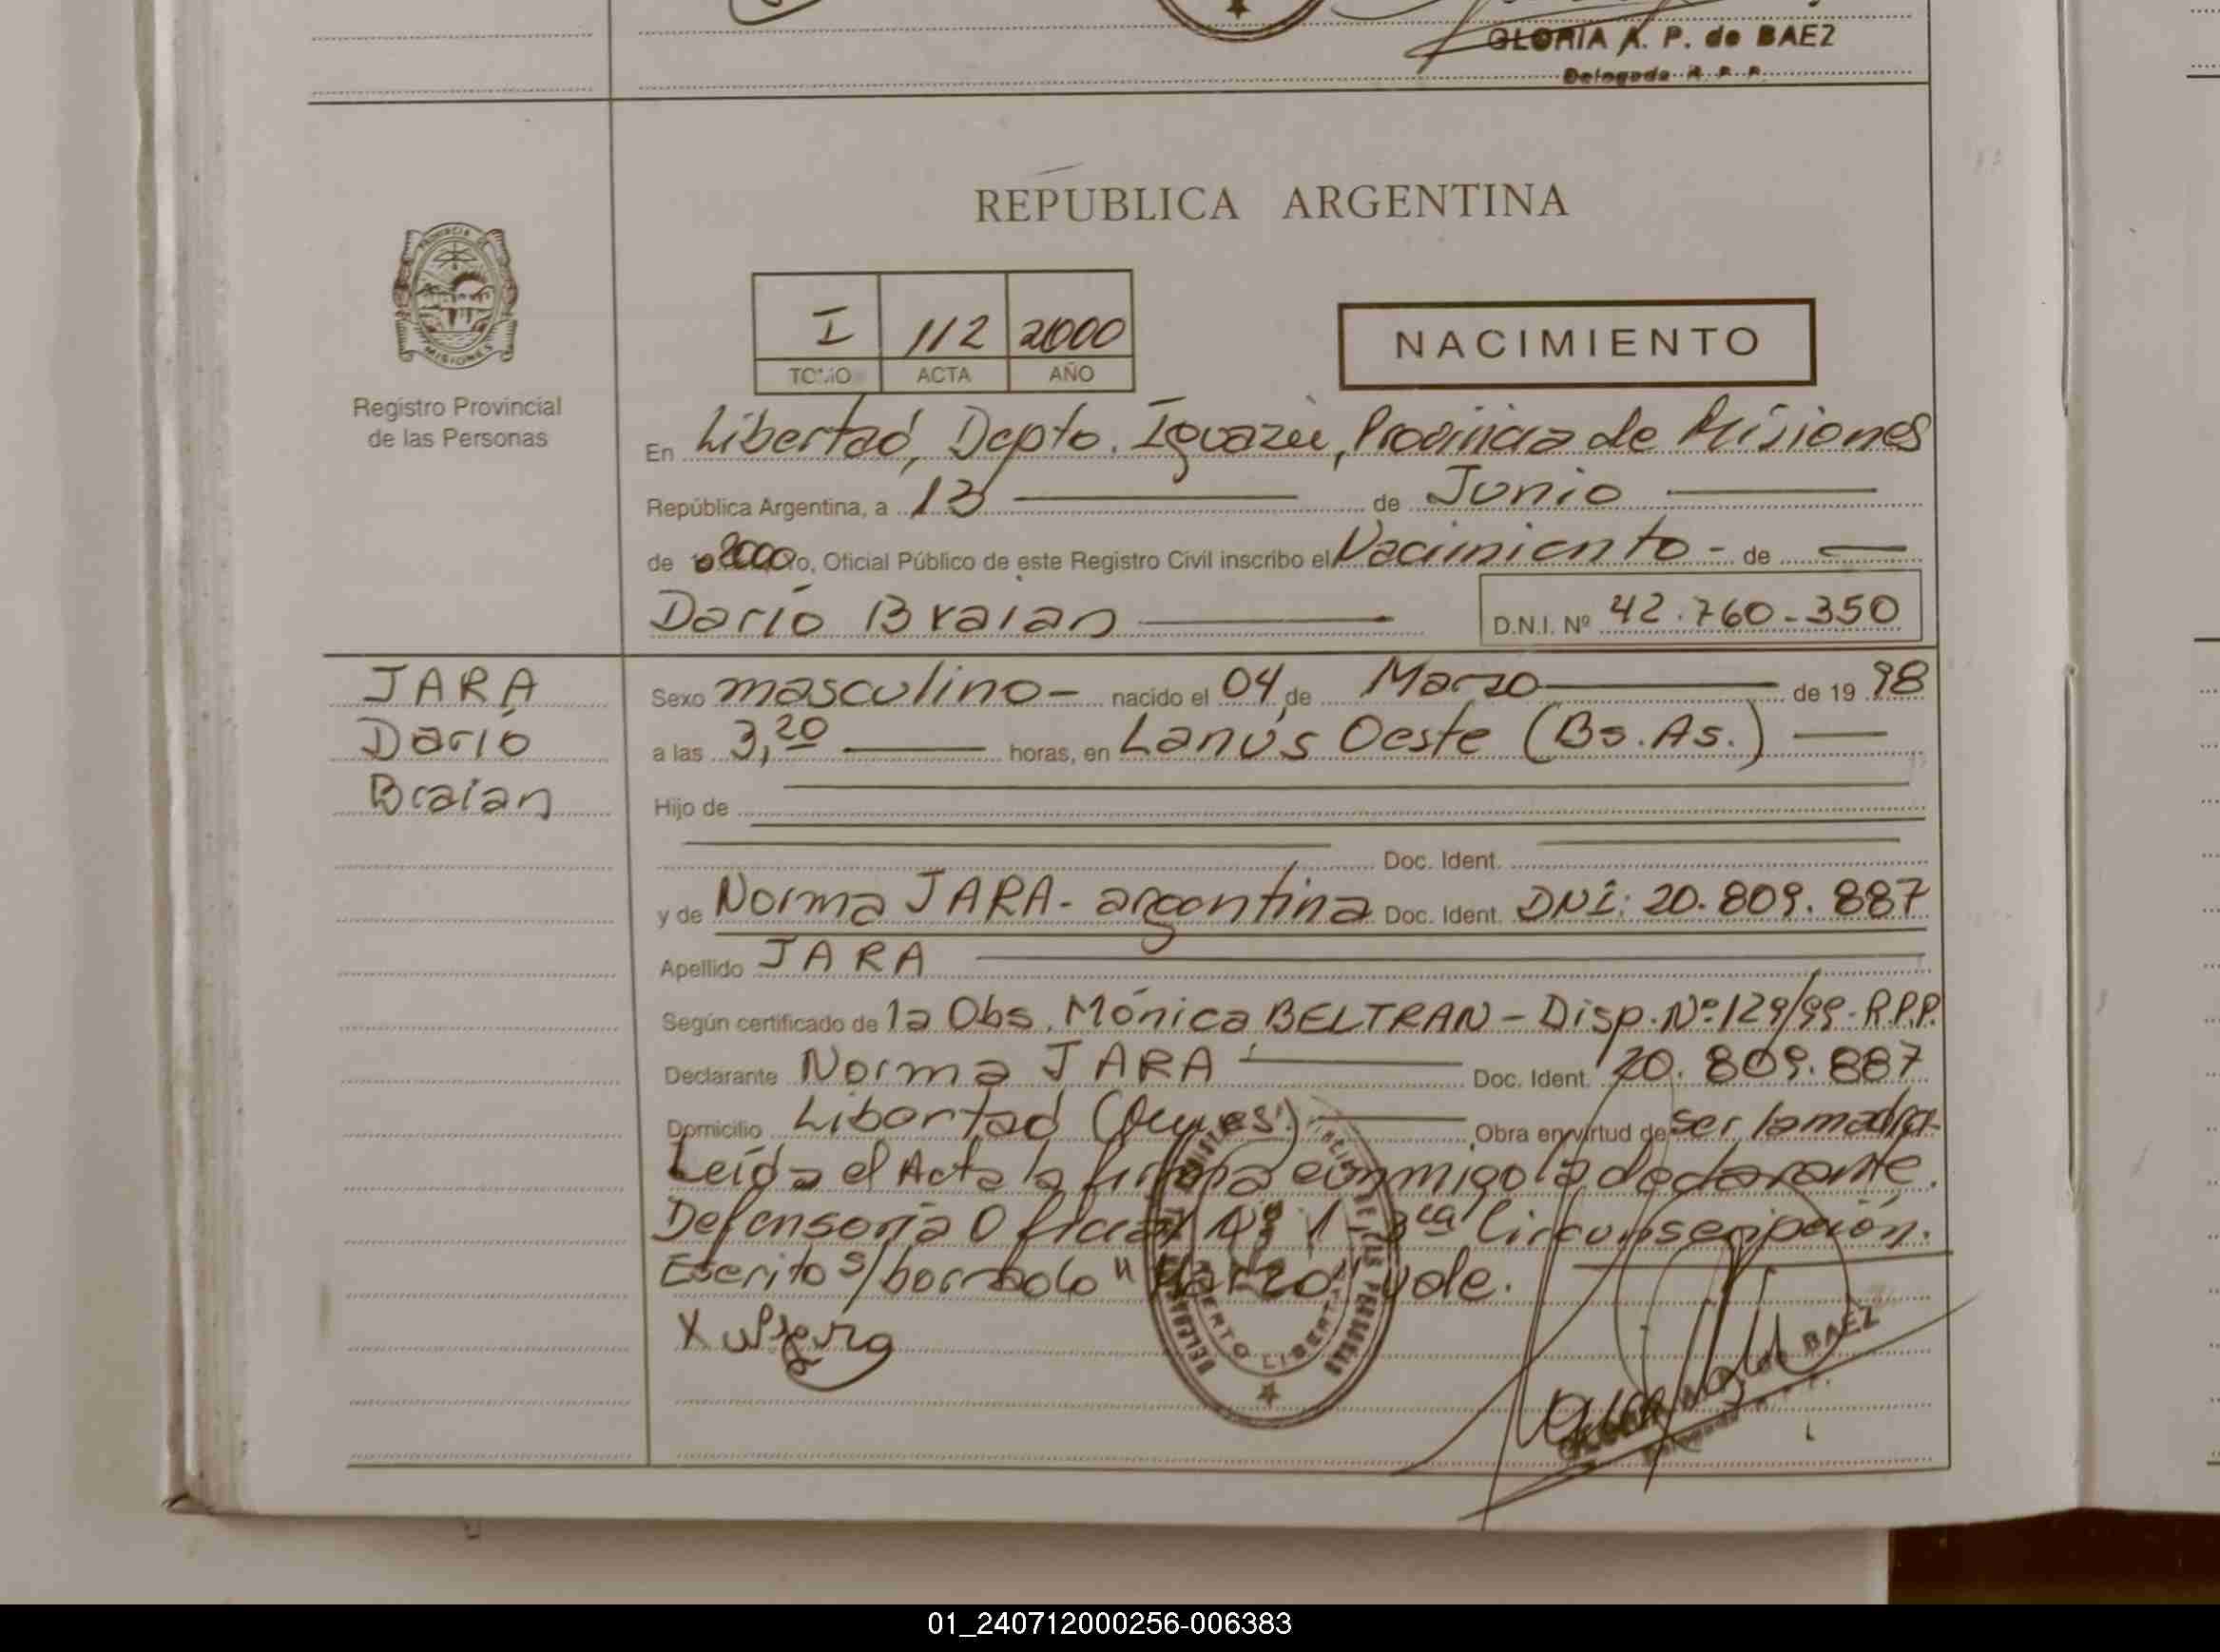 GLORIA A. P. de BAEZ
Delegada R. P. P.
REPUBLICA ARGENTINA
PROVINCIA DE
MISIONES
Registro Provincial
de las Personas
I 112 2000
TOMO ACTA AÑO
NACIMIENTO
En Libertad, Depto. Iguazú, Provincia de Misiones
República Argentina, a 13 de Junio
de 2000 Yo, Oficial Público de este Registro Civil inscribo el Nacimiento - de
Darío Braian
D.N.I. Nº 42.760-350
JARA
Darío
Braian
Sexo masculino - nacido el 04 de Marzo de 19 98
a las 3,20 horas, en Lanús Oeste (Bs. As.)
Hijo de
Doc. Ident.
y de Norma JARA - argentina Doc. Ident. DNI: 20.809.887
Apellido JARA
Según certificado de la Obs. Mónica BELTRAN - Disp. Nº 129/99 - R.P.P.
Declarante Norma JARA Doc. Ident. 20.809.887
Domicilio Libertad Obra en virtud de ser la madre
Leída el Acta la firma conmigo la declarante.
Defensoría Oficial Nº 1 3ra Circunscripción.
Escrito s/borrado "Marzo" vale.
DE LAS PERSONAS
PUERTO LIBERTAD
BAEZ
01_240712000256-006383